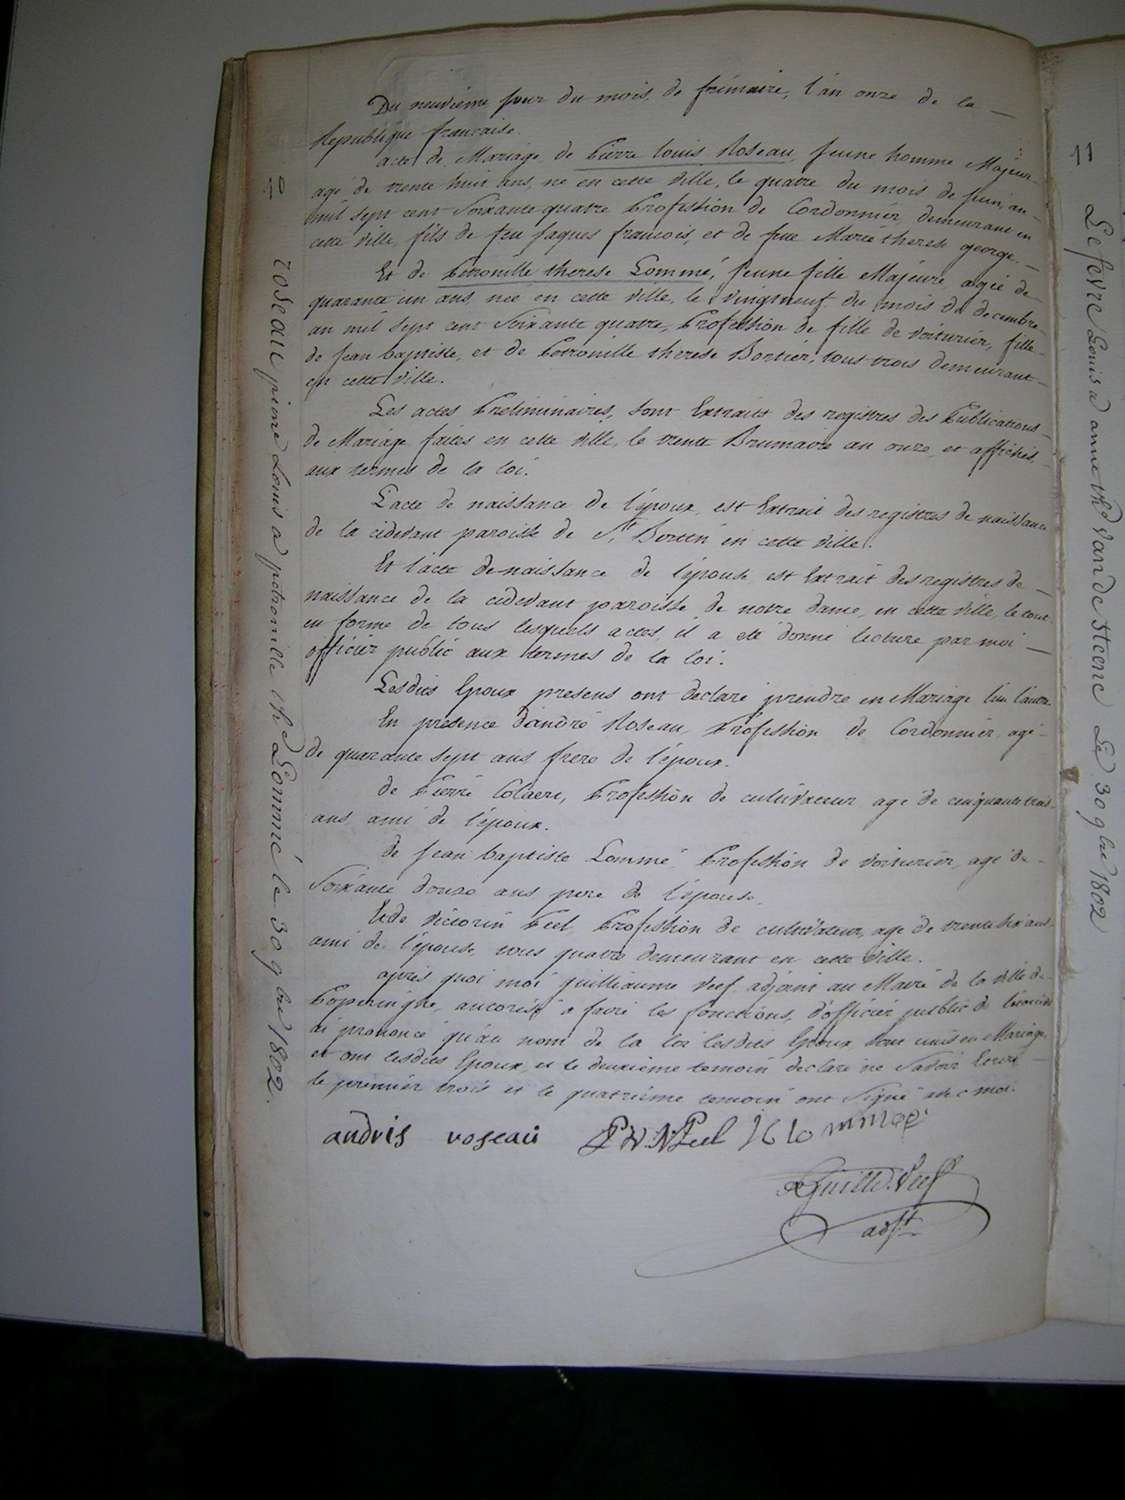 Du neuvième jour du mois de frimaire, l'an onze de la
Republique francaise.
acte de Mariage de Pierre louis Roseau, Jeune homme Majeur
agé de trente huit ans, né en cette ville, le quatre du mois de Juin, an
mil sept cent Soixante quatre Profession de Cordonnier demeurant en
cette ville, fils de feu Jaques francois, et de feue Marie therese george.
Et de Petronille therese Lommé, Jeune fille Majeure, agée de
quarante un ans, née en cette ville, le vingtneuf du mois de decembre
an mil sept cent Soixante quatre, Profession de fille de voiturier, fille
de Jean baptiste, et de Petronille therese Bortier, tous trois demeurant
en cette ville.
Les actes Preliminaires, sont Extraits des registres des Publications
de Mariage faites en cette ville, le trente Brumaire an onze, et affichés,
aux termes de la loi.
L'acte de naissance de l'époux, est Extrait des registres de naissance
de la cidevant paroisse de St Bertin en cette ville.
Et l'acte de naissance de l'épouse est Extrait des registres de
naissance de la cidevant paroisse de notre dame, en cette ville, le tout
en forme de tous lesquels actes, il a été donné lecture par moi
officier public aux termes de la loi.
Lesdits Epoux presens ont declaré prendre en Mariage l'un l'autre
En presence d'andré Roseau, Profession de Cordonnier, agé
de quarante sept ans frere de l'époux.
de Pierre Colaert, Profession de cultivateur agé de cinquante trois
ans ami de l'époux.
de Jean baptiste Lommé Profession de voiturier, agé de
Soixante douze ans pere de l'épouse.
Et de victorin Peel, Profession de cultivateur, agé de trente six ans
ami de l'épouse, tous quatre demeurant en cette ville.
après quoi moi guilliaume Veef, adjoint au Maire de la ville de
Poperinghe, autorisé à faire les fonctions, d'officier public de l'état civil
ai prononcé qu'au nom de la loi lesdits Epoux sont unis en Mariage,
et ont lesdits Epoux, et le deuxième temoin declaré ne savoir Ecrire
le premier trois et le quatrième temoin ont Signé avec moi.
andris roseau P V N Peel I b lommee
Guill. Veef
adjt
10 roseau pierre Louis a petronille thé Lommé le 30 9bre 1802.
11 Lefevre Louis a anne thé Vande Steene Le 30 9bre 1802